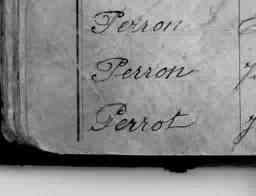 Perron
Perron
Perrot